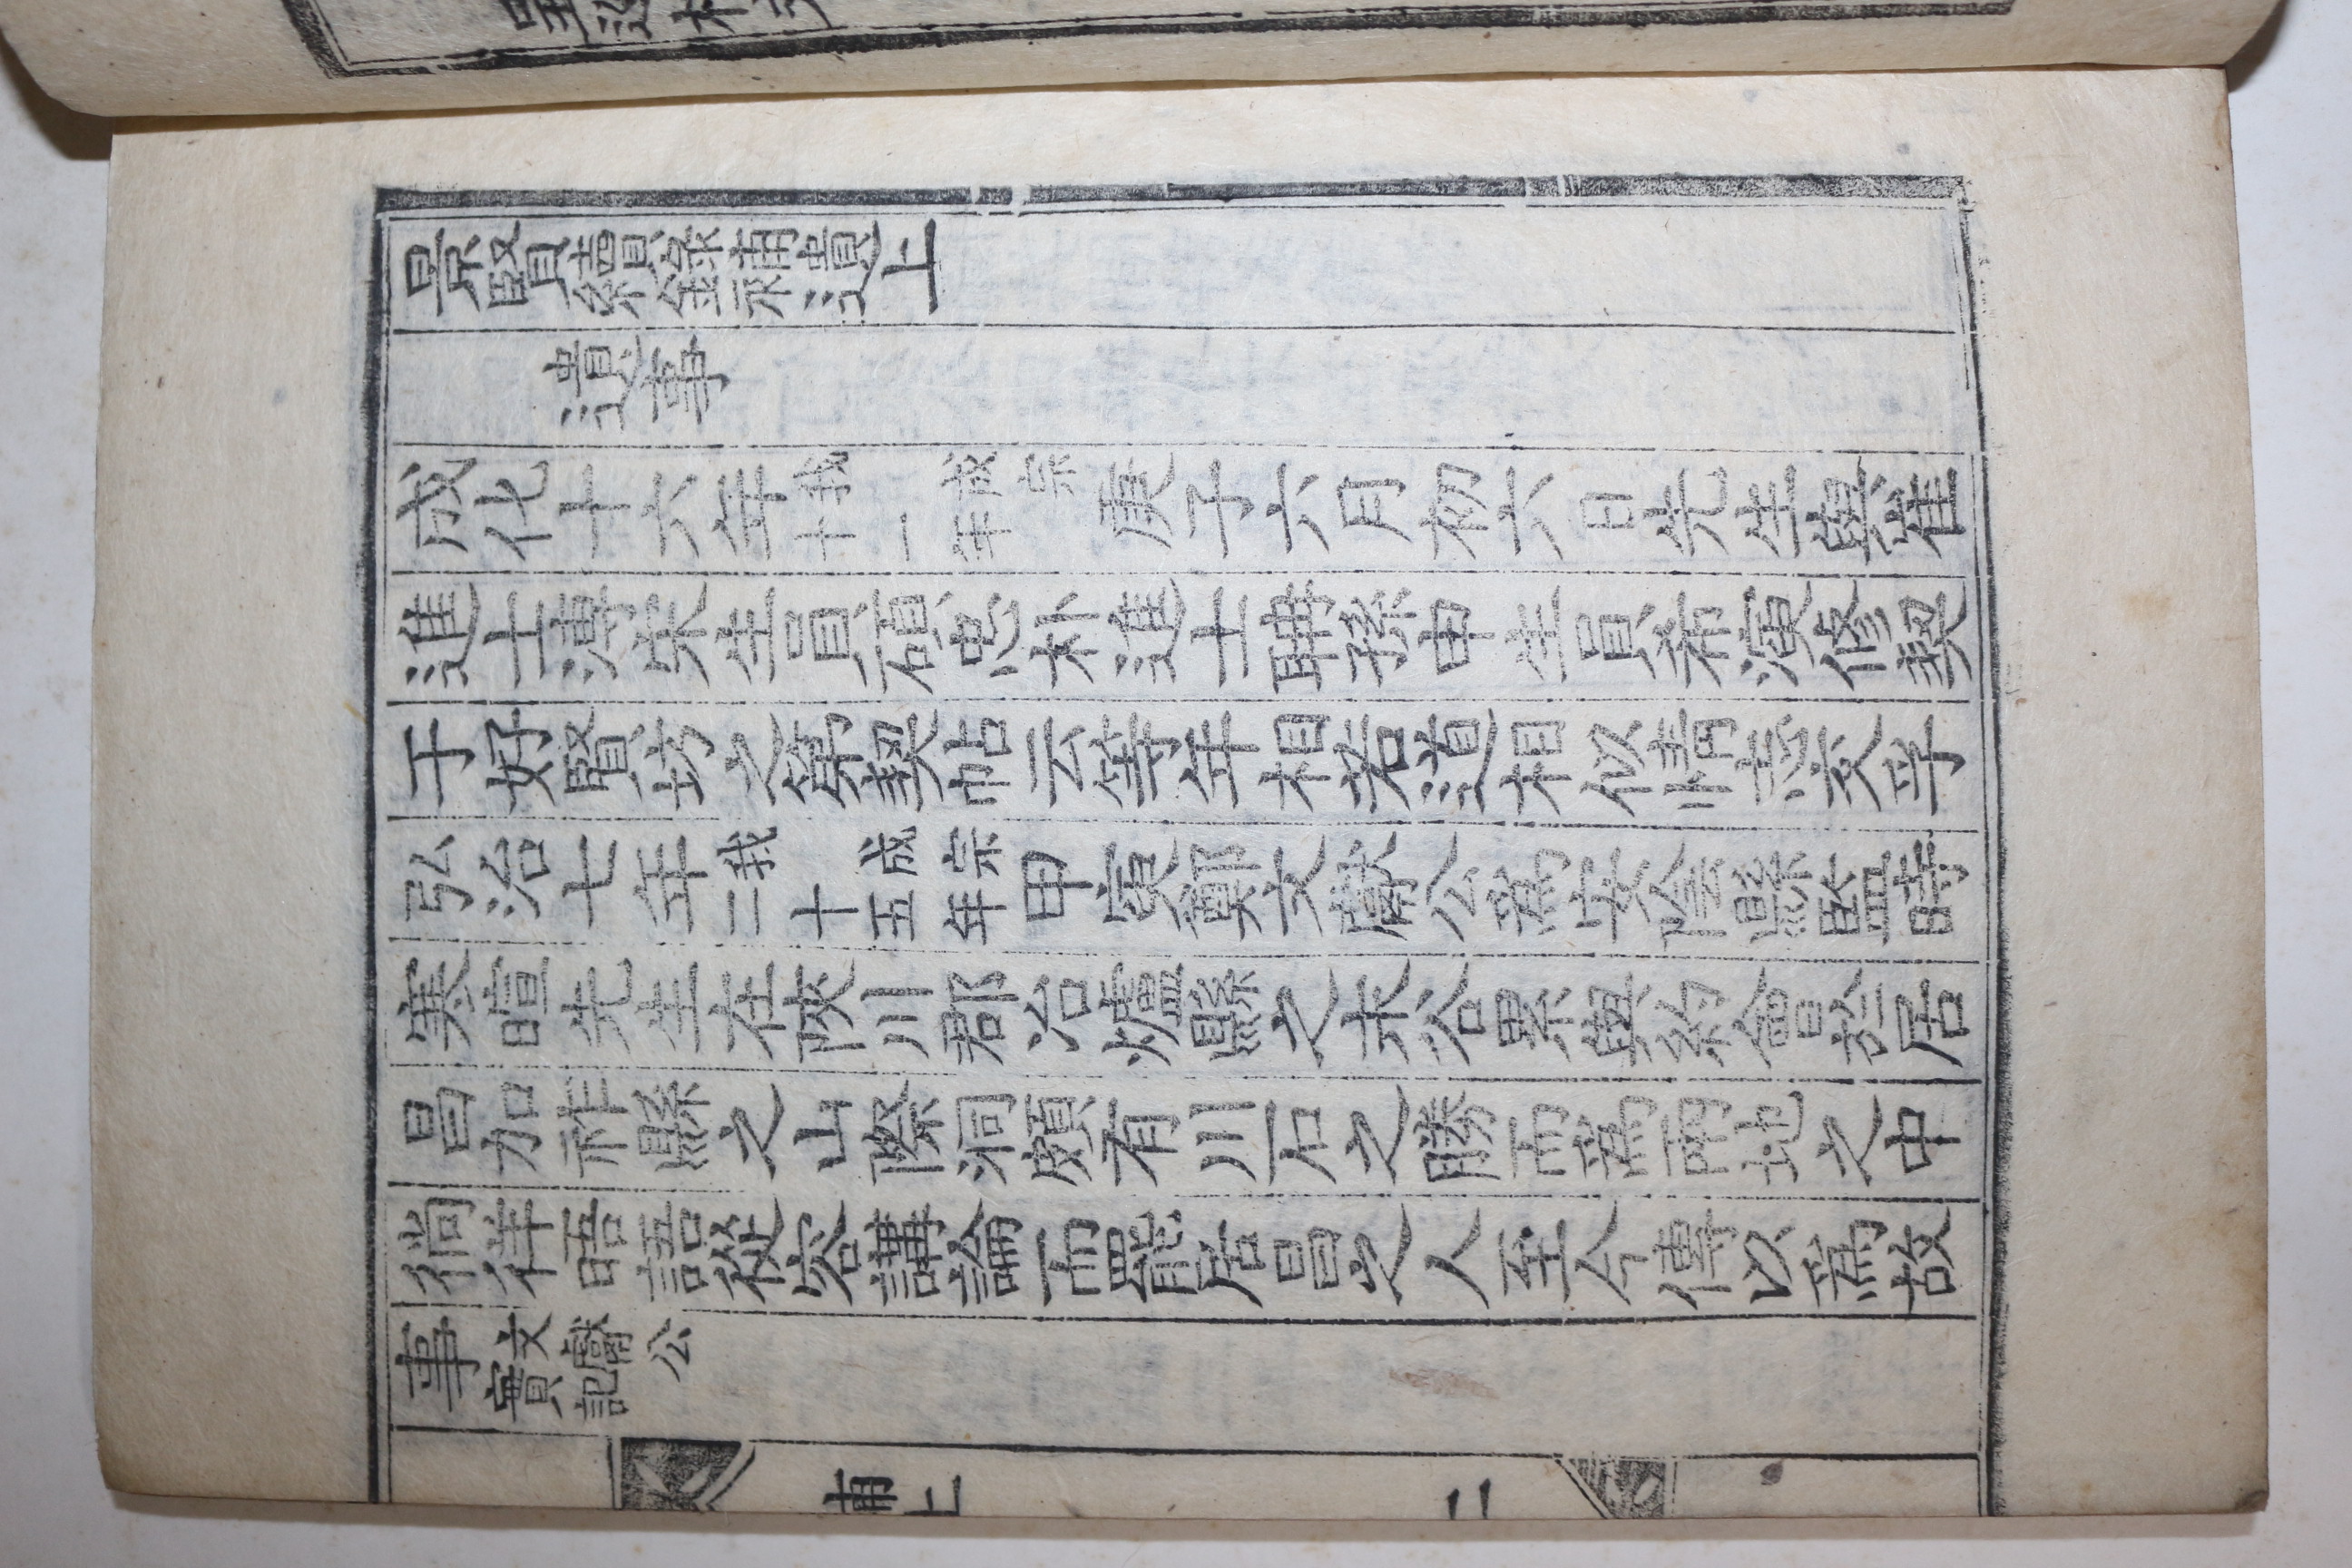 景賢續錄補遺上
遺事
成化十六年我成宗十一年庚子六月初六日先生與崔
進士漙宋生員碩忠朴進士聃孫申生員希演修契
于好賢坊之第契帖云等年相若道相似情志交孚
弘治七年我成宗二十五年甲寅鄭文獻公爲安陰縣監時
寒暄先生在陜川郡冶爐縣之末谷累與約會於居
昌加祚縣之山際洞頗有川石之勝而爲兩地之中
徜徉晤語從容講論而罷居昌之人至今傳以爲故
事文獻公實記
補上
二